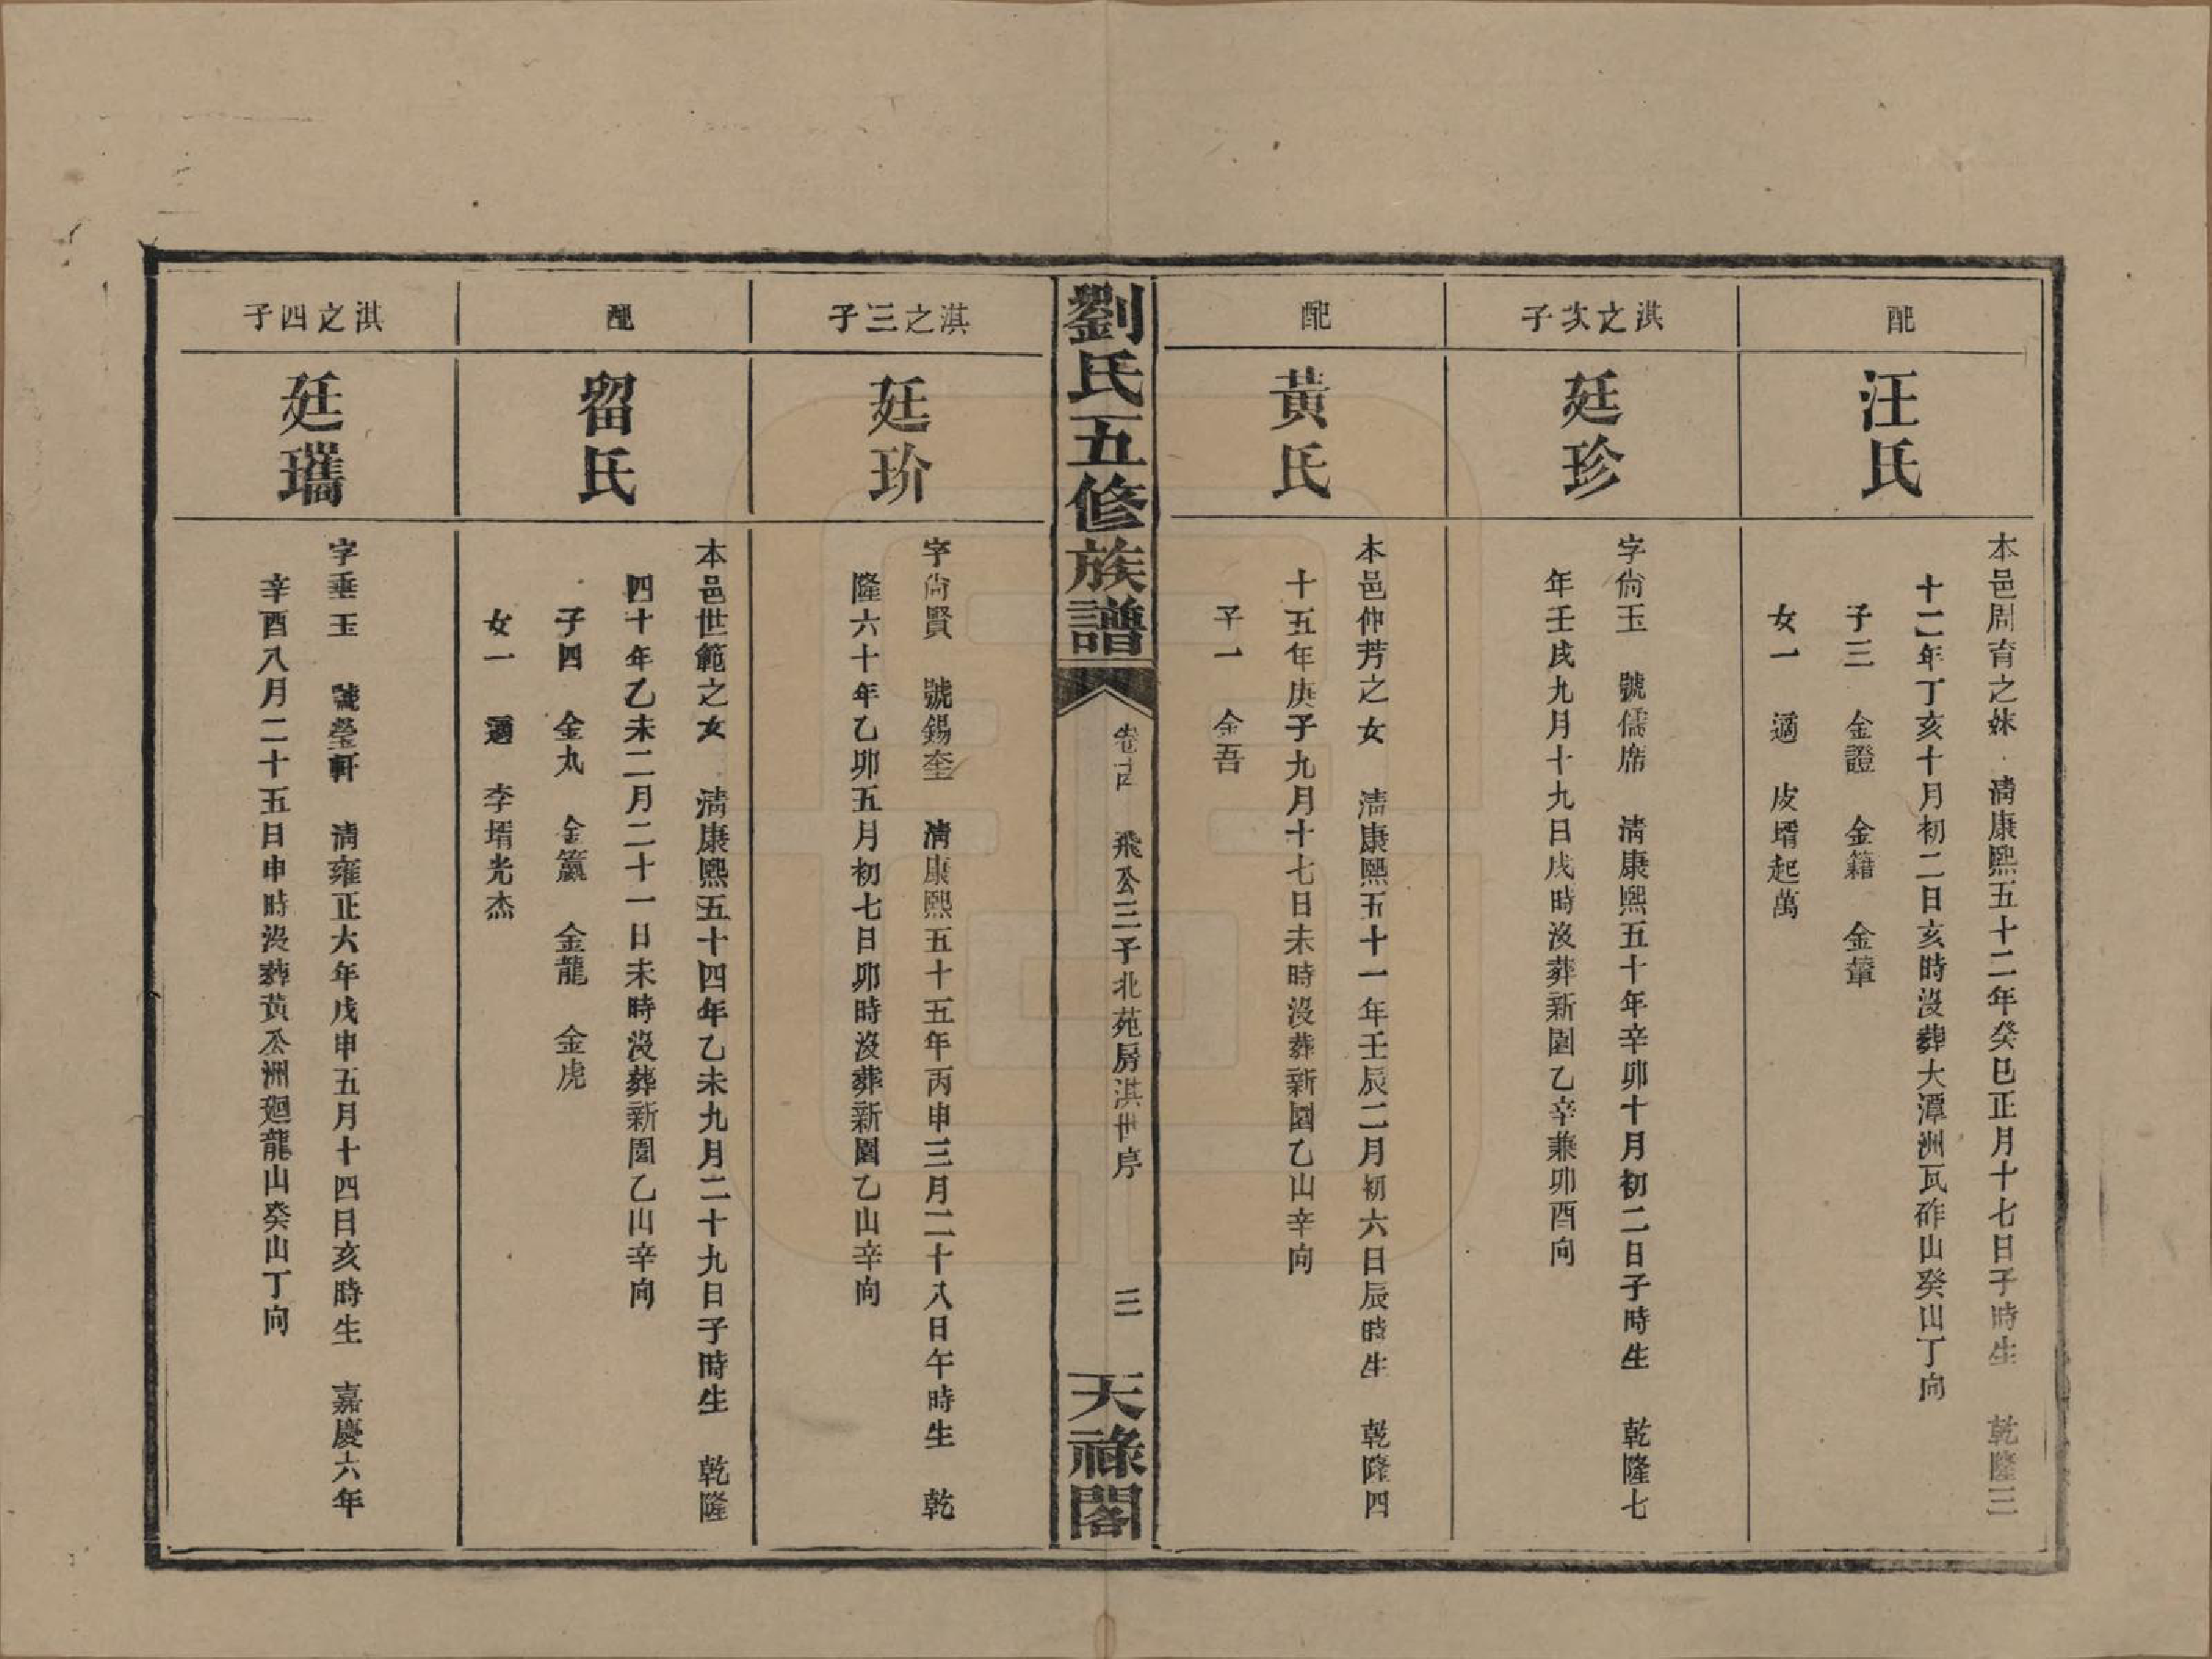 配
汪氏
本邑周育之妹 清康熙五十二年癸巳正月十七日子時生 乾隆三
十二年丁亥十月初二日亥時沒葬大潭洲瓦砟山癸山丁向
子三 金證 金籍 金聲
女一 適 皮壻起萬
淇之次子
廷珍
字尙玉 號儒席 清康熙五十年辛卯十月初二日子時生 乾隆七
年壬戌九月十九日戌時沒葬新園乙辛兼卯酉向
配
黃氏
本邑仲芳之女 清康熙五十一年壬辰二月初六日辰時生 乾隆四
十五年庚子九月十七日未時沒葬新園乙山辛向
子一 金吾
劉氏五修族譜
卷十四 飛公三子北苑房淇世序 三
天祿閣
淇之三子
廷玠
字尙賢 號錫奎 清康熙五十五年丙申三月二十八日午時生 乾
隆六十年乙卯五月初七日卯時沒葬新園乙山辛向
配
留氏
本邑世範之女 清康熙五十四年乙未九月二十九日子時生 乾隆
四十年乙未二月二十一日未時沒葬新園乙山辛向
子四 金丸 金籯 金龍 金虎
女一 適 李壻光杰
淇之四子
廷瓗
字垂玉 號瑩軒 清雍正六年戊申五月十四日亥時生 嘉慶六年
辛酉八月二十五日申時沒葬黃公洲廻龍山癸山丁向